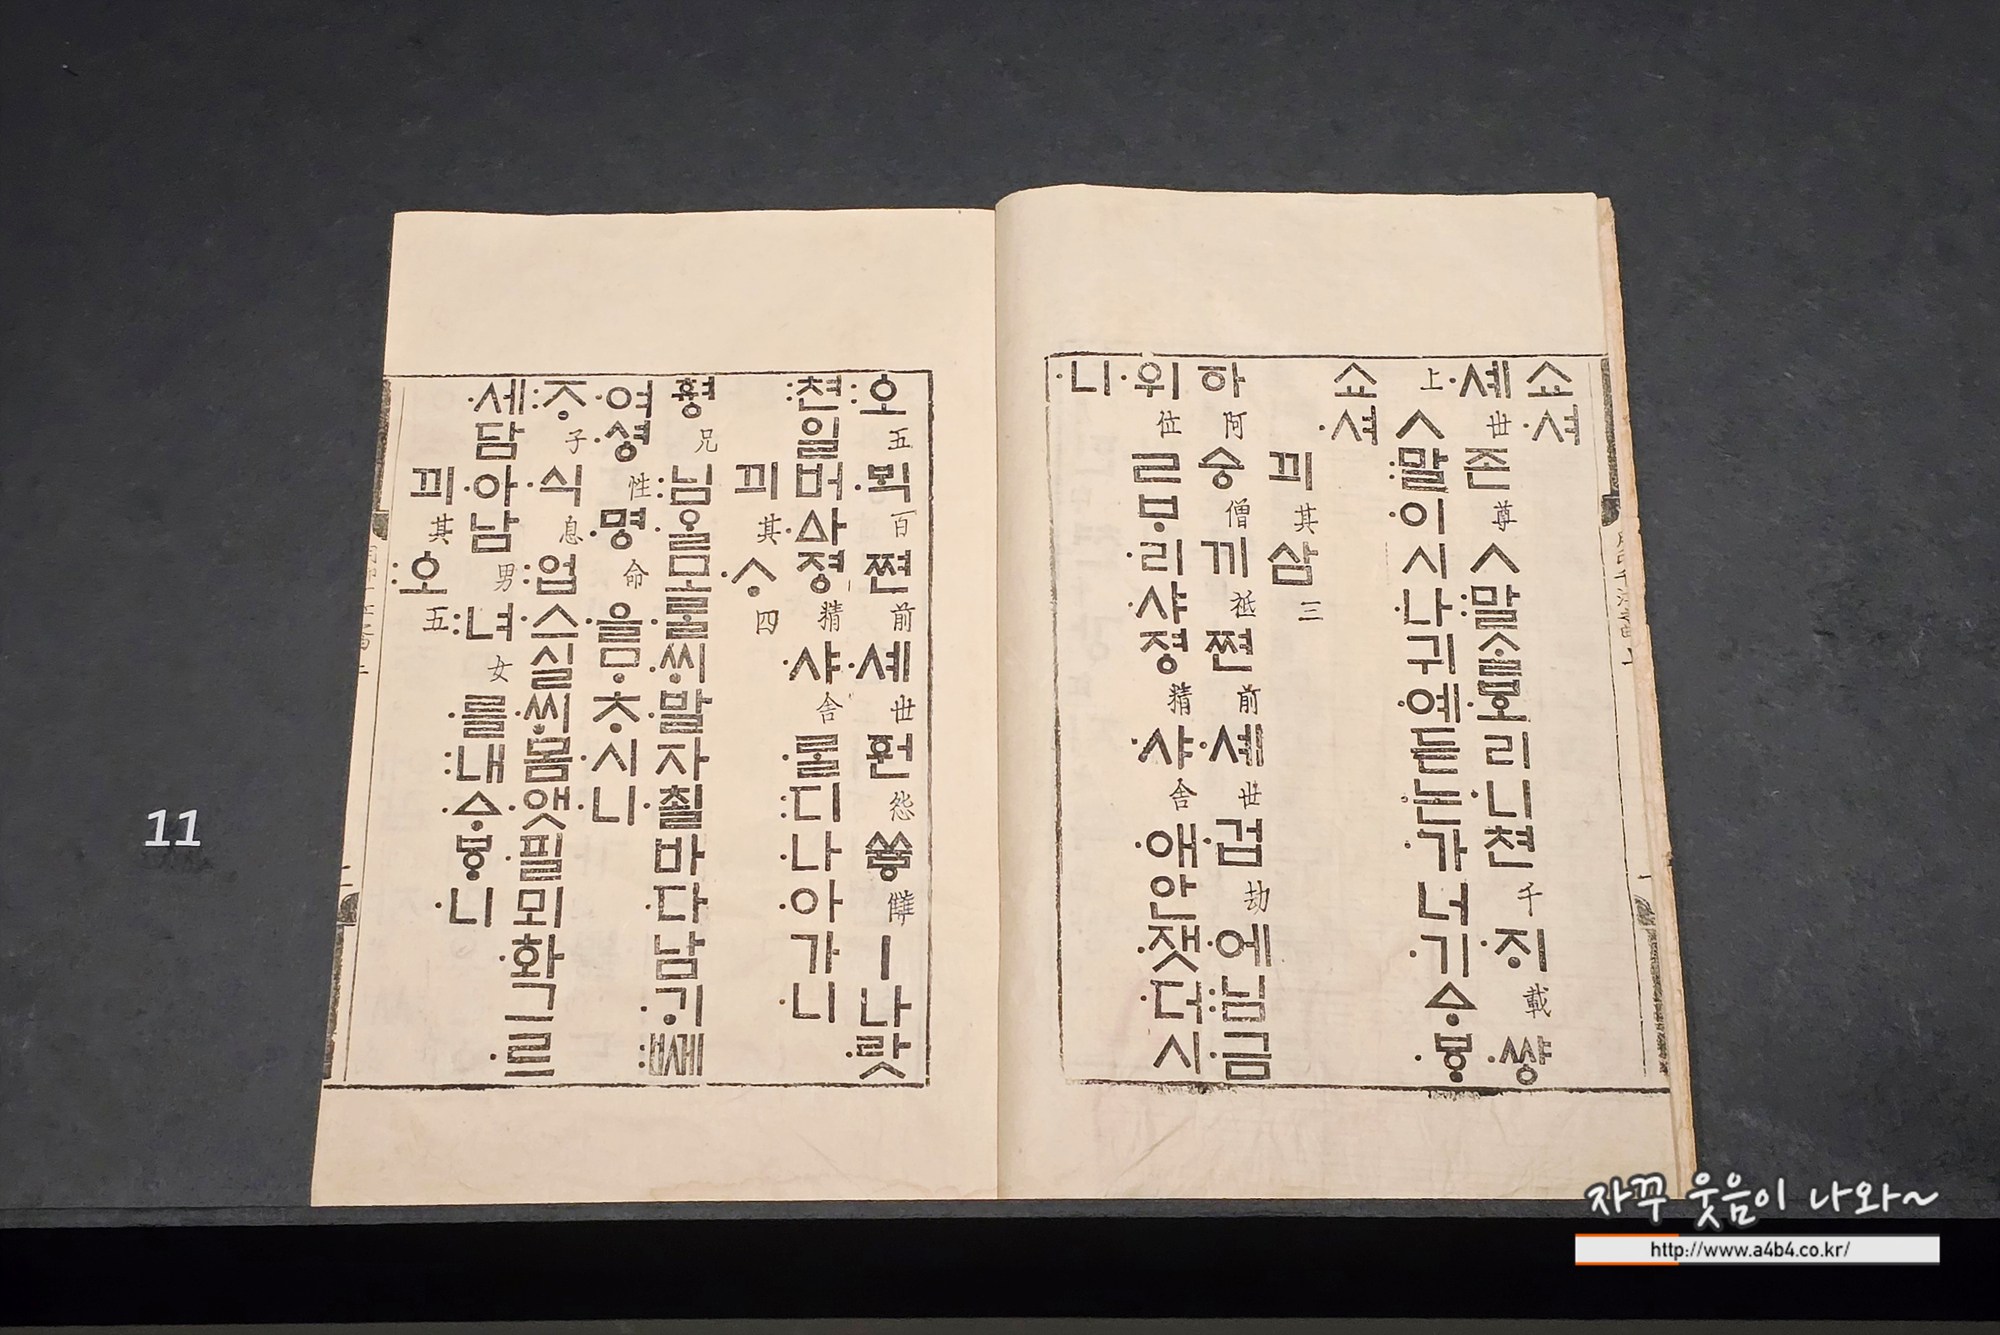 쇼셔
셰世존尊ㅅ말ᄉᆞᆯᄫᅩ리니쳔千ᄌᆡ載썅
上ㅅ말이시나귀예듣논가너기ᅀᆞᄫᆞ
쇼셔
끠其삼三
하阿승僧끼祇쪈前셰世겁劫에님금
위位ㄹᄇᆞ리샤졍精샤舍애안잿더시
니
오五ᄇᆡᆨ百쪈前셰世ᅙᅯᆫ怨쓩讐ㅣ나랏
쳔일버ᅀᅡ졍精샤舍ᄅᆞᆯ디나아가니
끠其ᄉᆞ四
ᅘᅧᆼ兄님ᄋᆞᆯ모ᄅᆞᆯᄊᆡ발자쵤바다남ᄀᆡᄢᅦ
여셩性명命을ᄆᆞᄎᆞ시니
ᄌᆞ子식息업스실ᄊᆡ몸앳필뫼화그르
세담아남男녀女를내ᅀᆞᄫᆞ니
끠其오五
11
자꾸 웃음이 나와~
http://www.a4b4.co.kr/